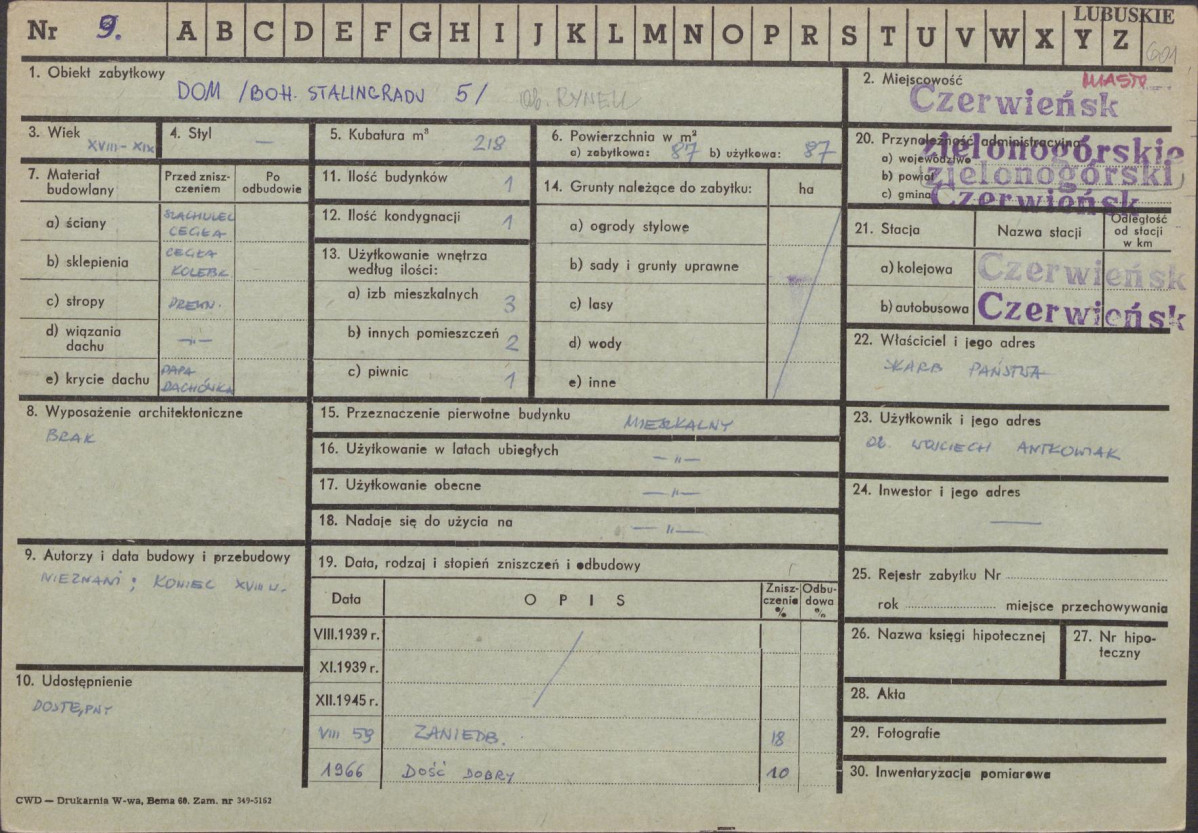 LUBUSKIE
Nr 9. A B C D E F G H I J K L M N O P R S T U V W X Y Z
601
1. Obiekt zabytkowy
DOM /BOH. STALINGRADU 5/ ob. RYNEK
2. Miejscowość MIASTO
Czerwieńsk
3. Wiek XVIII-XIX
4. Styl —
5. Kubatura m³ 218
6. Powierzchnia w m²
a) zabytkowa: 87 b) użytkowa: 87
20. Przynależność administracyjna
a) województwo zielonogórskie
b) powiat zielonogórski
c) gmina Czerwieńsk
7. Materiał budowlany
Przed zniszczeniem
Po odbudowie
a) ściany SZACHULEC CEGŁA
b) sklepienia CEGŁA KOLEBK.
c) stropy DREWN.
d) wiązania dachu —"—
e) krycie dachu PAPA DACHÓWKA
11. Ilość budynków 1
12. Ilość kondygnacji 1
13. Użytkowanie wnętrza według ilości:
a) izb mieszkalnych 3
b) innych pomieszczeń 2
c) piwnic 1
14. Grunty należące do zabytku: ha
a) ogrody stylowe
b) sady i grunty uprawne
c) lasy
d) wody
e) inne
21. Stacja
Nazwa stacji
Odległość od stacji w km
a) kolejowa Czerwieńsk
b) autobusowa Czerwieńsk
22. Właściciel i jego adres
SKARB PAŃSTWA
8. Wyposażenie architektoniczne
BRAK
15. Przeznaczenie pierwotne budynku MIESZKALNY
16. Użytkowanie w latach ubiegłych —"—
17. Użytkowanie obecne —"—
18. Nadaje się do użycia na —"—
23. Użytkownik i jego adres
OB. WOJCIECH ANTKOWIAK
24. Inwestor i jego adres
—
9. Autorzy i data budowy i przebudowy
NIEZNANI; KONIEC XVIII W.
19. Data, rodzaj i stopień zniszczeń i odbudowy
Data
OPIS
Zniszczenie %
Odbudowa %
VIII.1939 r.
XI.1939 r.
XII.1945 r.
VIII 59 ZANIEDB. 18
1966 DOŚĆ DOBRY 10
25. Rejestr zabytku Nr
rok miejsce przechowywania
26. Nazwa księgi hipotecznej
27. Nr hipoteczny
10. Udostępnienie
DOSTĘPNY
28. Akta
29. Fotografie
30. Inwentaryzacja pomiarowa
CWD — Drukarnia W-wa, Bema 60. Zam. nr 349-5162